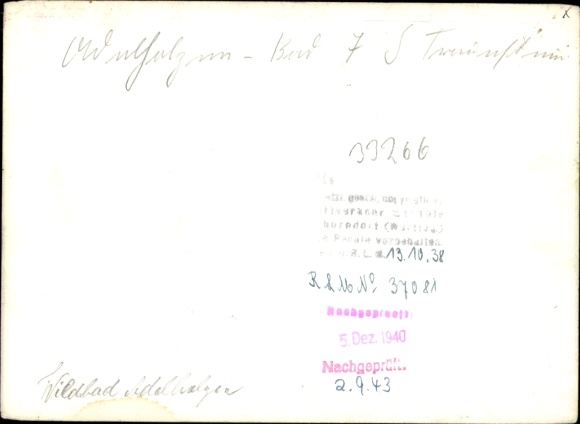 Adelholzen - Bad 7 S Traunstein
33266
gesch.
vorbehalten
13.10.38
R.L.M. Nº 37081
Nachgeprüft:
5. Dez. 1940
Nachgeprüft:
2.9.43
Wildbad Adelholzen